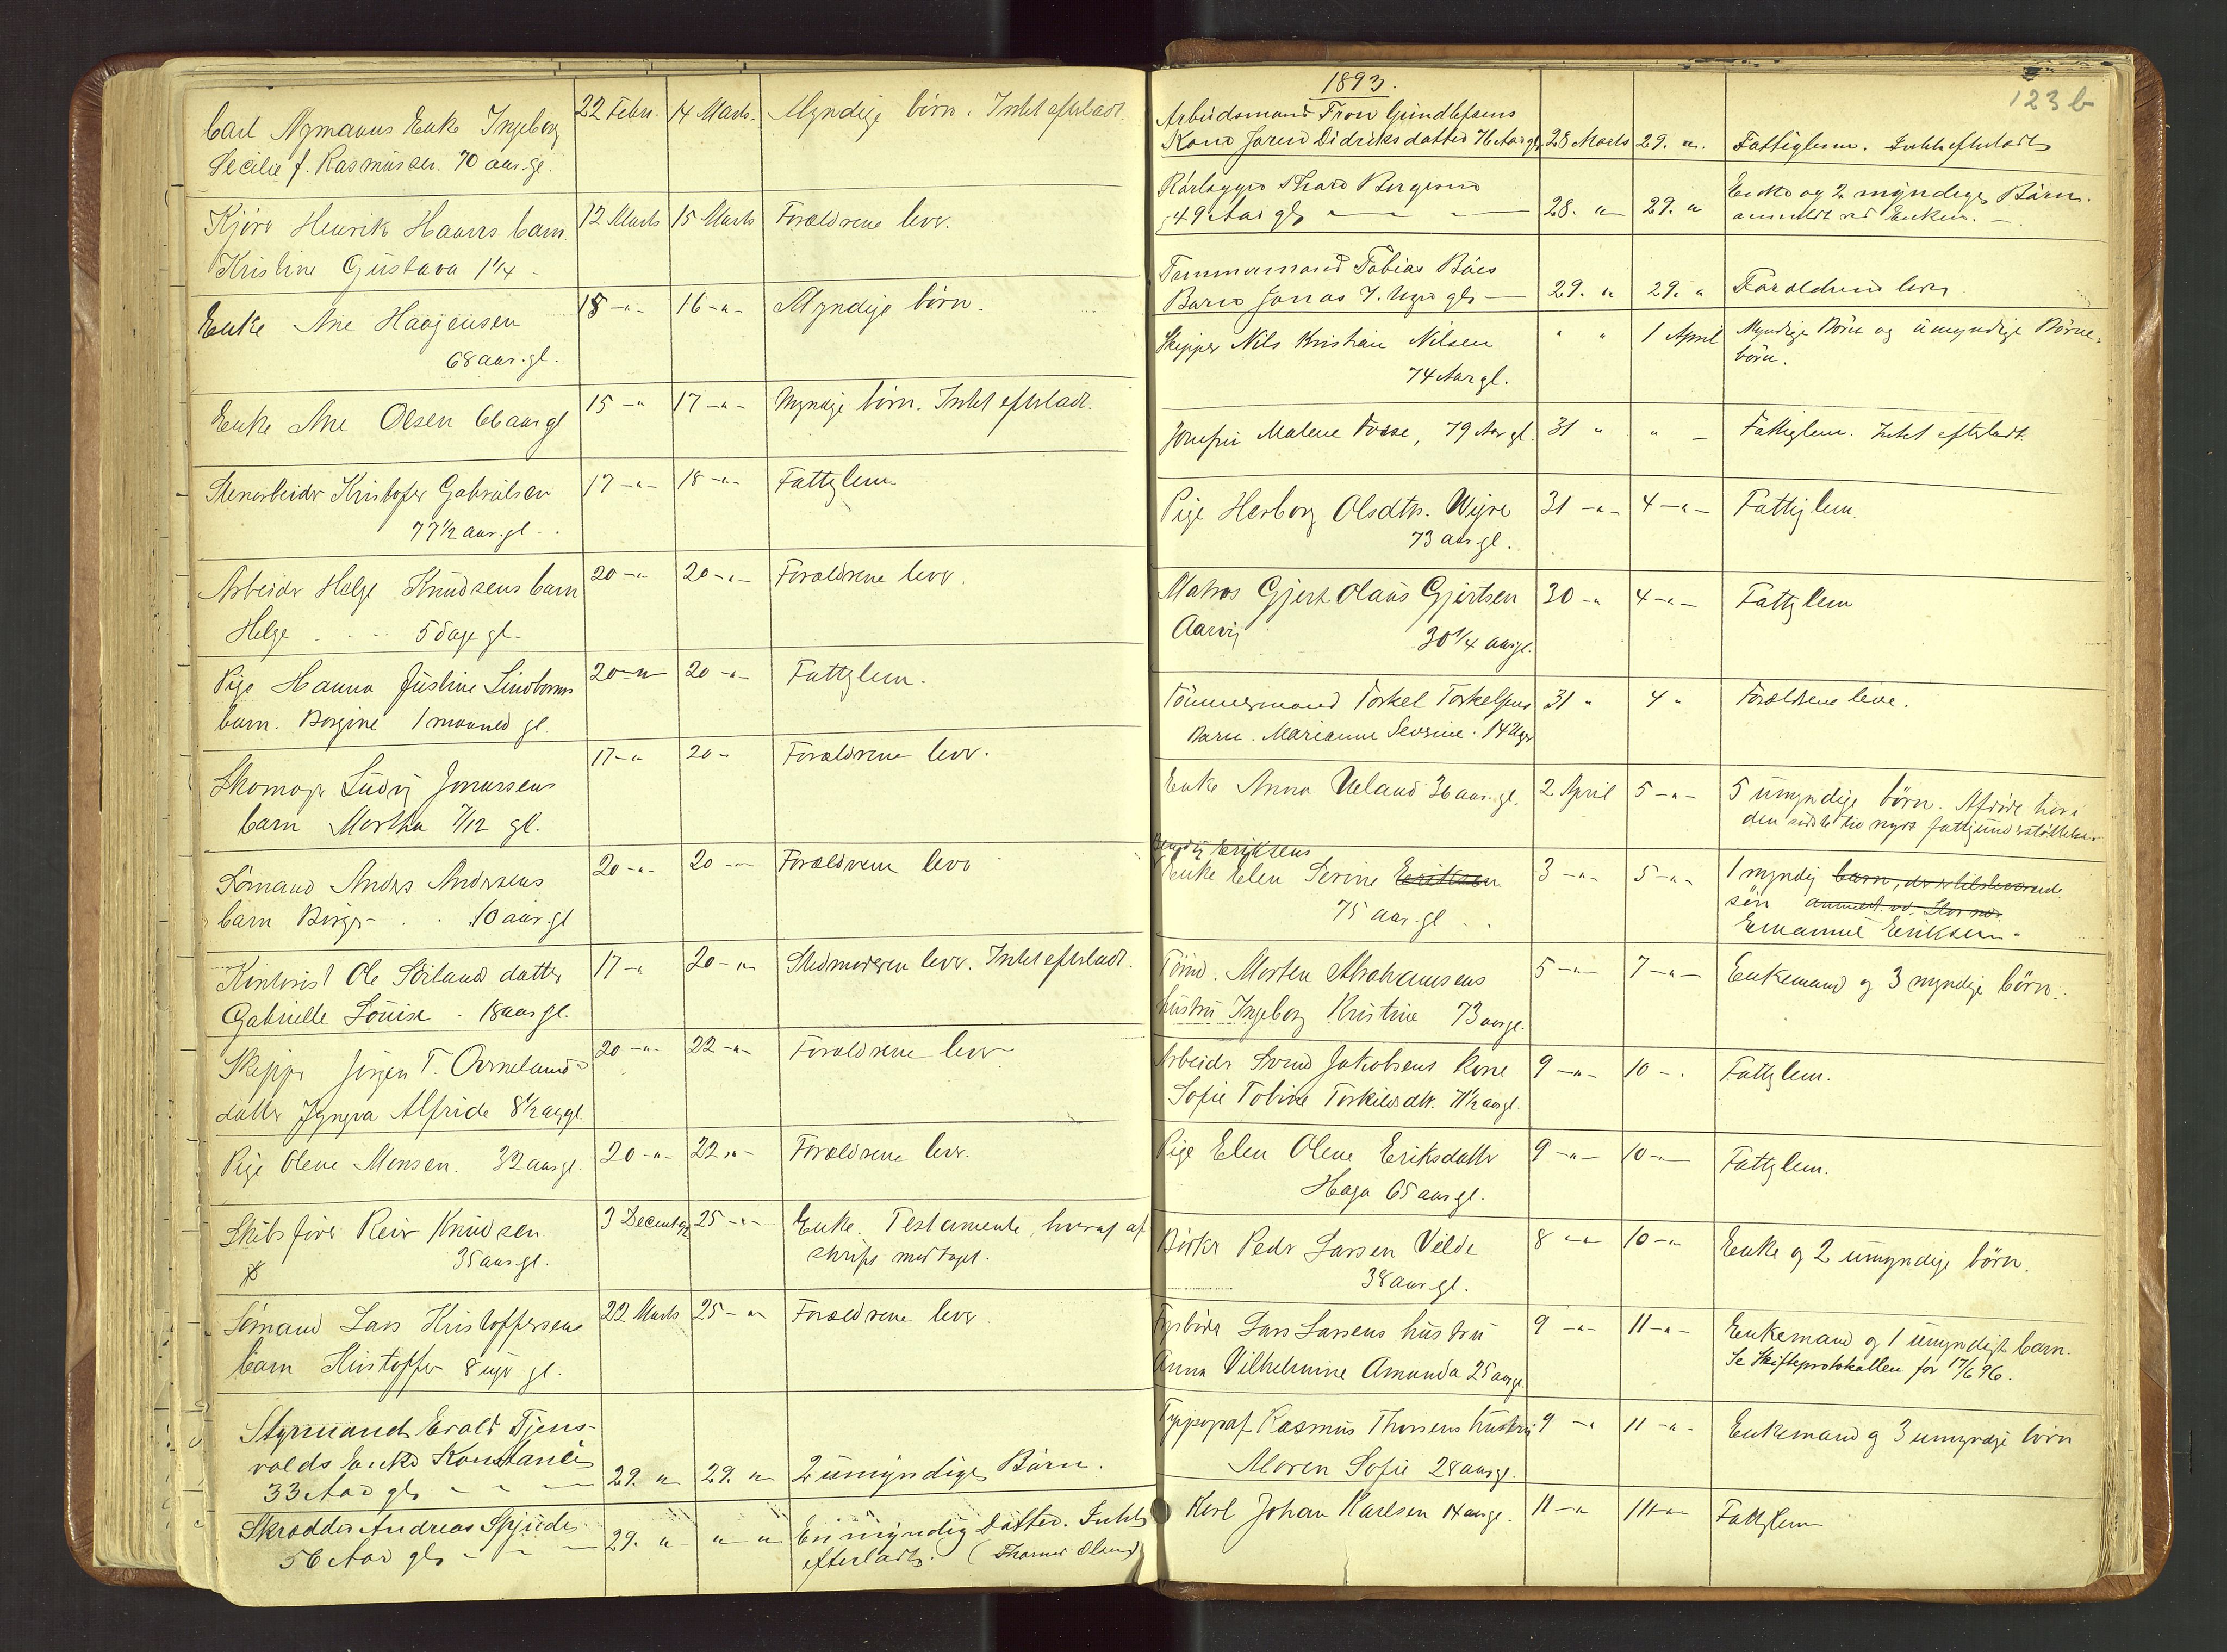 Carl Nymanns Enke Ingeborg 22 Febr. 14 Marts. Myndige børn. Intet efterladt.
Secilie f. Rasmussen. 70 aar gl.
Kjører Henrik Haavers barn 12 Marts 15 Marts Forældrene lever.
Kristine Gustava 1 1/4 -
Enke Ane Haagensen 15 -"- 16 -"- Myndige børn.
68 aar. gl.
Enke Ane Olsen 66 aar gl 15 -" 17 -"- Myndige børn. Intet efterladt.
Stenarbeider Kristofer Gabrielsen 17 -"- 18 -"- Fattiglem
77 1/2 aar. gl.
Arbeider Helge Knudsens barn 20 -" 20 -"- Forældrene lever.
Helge 5 dage gl.
Pige Hanna Justine Lindboms 20 -" 20 -"- Fattiglem.
barn. Borgine 1 maaned gl.
Skomager Ludvig Jonassens 17 -" 20 - Forældrene lever.
barn Martha 7/12 gl.
Sømand Anders Andersens 20 -"- 20 -"- Forældrene lever
barn Birger - 10 aar. gl
Kontorist Ole Sørlands datter 17 -" 20 -"- Stedmoderen lever. Intet efterladt.
Gabrielle Louise. 18 aar gl.
Skipper Jørgen T. 20 -"- 22 -"- Forældrene lever
datter Alfride 8 1/2 aar gl.
Pige Olene Monsen. 32 aar gl. 20 -"- 22 -"- Forældrene lever.
Skibsfører Knudsen 3 Decemb 92 25 -"- Enke. Testamente, hvoraf af
35 aar gl. skrift modtaget.
Sømand Lars Kristoffersens 22 Marts 25 -"- Forældrene lever
barn Kristoffer 8 uger gl.
Styrmand Evald Tjens-
volds Enke Konstance
33 Aar gl. 29. " 29. " 2 umyndige Børn.
Skrædder Andreas Spjuds En myndig Datter. Intet
56 Aar gl. 29. " " " efterladt. (Thomas Olsen)
1893.
123 b
Arbeidsmand Tron Gundlefsens
Kone Joren Didriksdatter 76 Aar gl. 28 Marts 29. " Fattiglem. Intet efterladt
Rørlægger Thard Bergesen Enke og 2 myndige Børn.
49 Aar gl. 28. " 29. " anmeldt ved Enken. -
Tømmermand Tobias Bøes
Barn Jonas 7. Uger gl. 29. " 29. " Forældrene lever.
Skipper Nils Kristian Nilsen " " 1 April Myndige Børn og umyndige Børne-
74 Aar gl. børn.
Jomfru Malene Fosse, 79 Aar gl. 31 " " - Fattiglem. Intet efterladt.
Pige Herborg Olsdtr. Wigre 31 -"- 4 -"- Fattiglem.
73 aar gl.
Matros Gjert Olaus Gjertsen 30 -" 4 -"- Fattiglem
30 1/4 aar gl.
Tømmermand Torkel Torkelsens 31 " 4 " Forældrene leve.
Barn. Marianne Severine. 14 Uger
Enke Anna Ueland 36 aar. gl. 2 April 5 -"- 5 umyndige børn. Afdøde har i
den sidste tid nydt fattigunderstøttelse.
Eriksens
Enke Elen Serine Eriksen 3 -"- 5 -"- 1 myndig barn, der er tilstedeværende
75 aar. gl søn anmeldt ved
Emanuel Eriksen.
Tømd. Morten Abrahamsens 5 -"- 7 -"- Enkemand og 3 myndige børn.
hustru Ingeborg Kristine 73 aar gl.
Arbeider Svend Jakobsens kone 9 -"- 10 - . Fattiglem.
Sofie Tobine Torkildsdtr. 71 1/2 aar gl.
Pige Elen Olene Eriksdatter 9 -"- 10 -"- Fattiglem.
Haga 65 aar gl.
Peder Larsen Velde 8 -"- 10 -"- Enke og 2 umyndige børn.
38 aar gl.
Fyrbøder Lars Larsens hustru 9 -"- 11 -"- Enkemand og 1 umyndigt barn.
Anna Vilhelmine Amanda 25 aar gl. Se Skifteprotokollen for 17/6 96.
Typograf Rasmus Thorsens hustru 9 -" 11 -"- Enkemand og 3 umyndige børn
Maren Sofie 28 aar gl.
Karl Johan Karlsen 14 aar gl. 11 -" 11 -"- Fattiglem